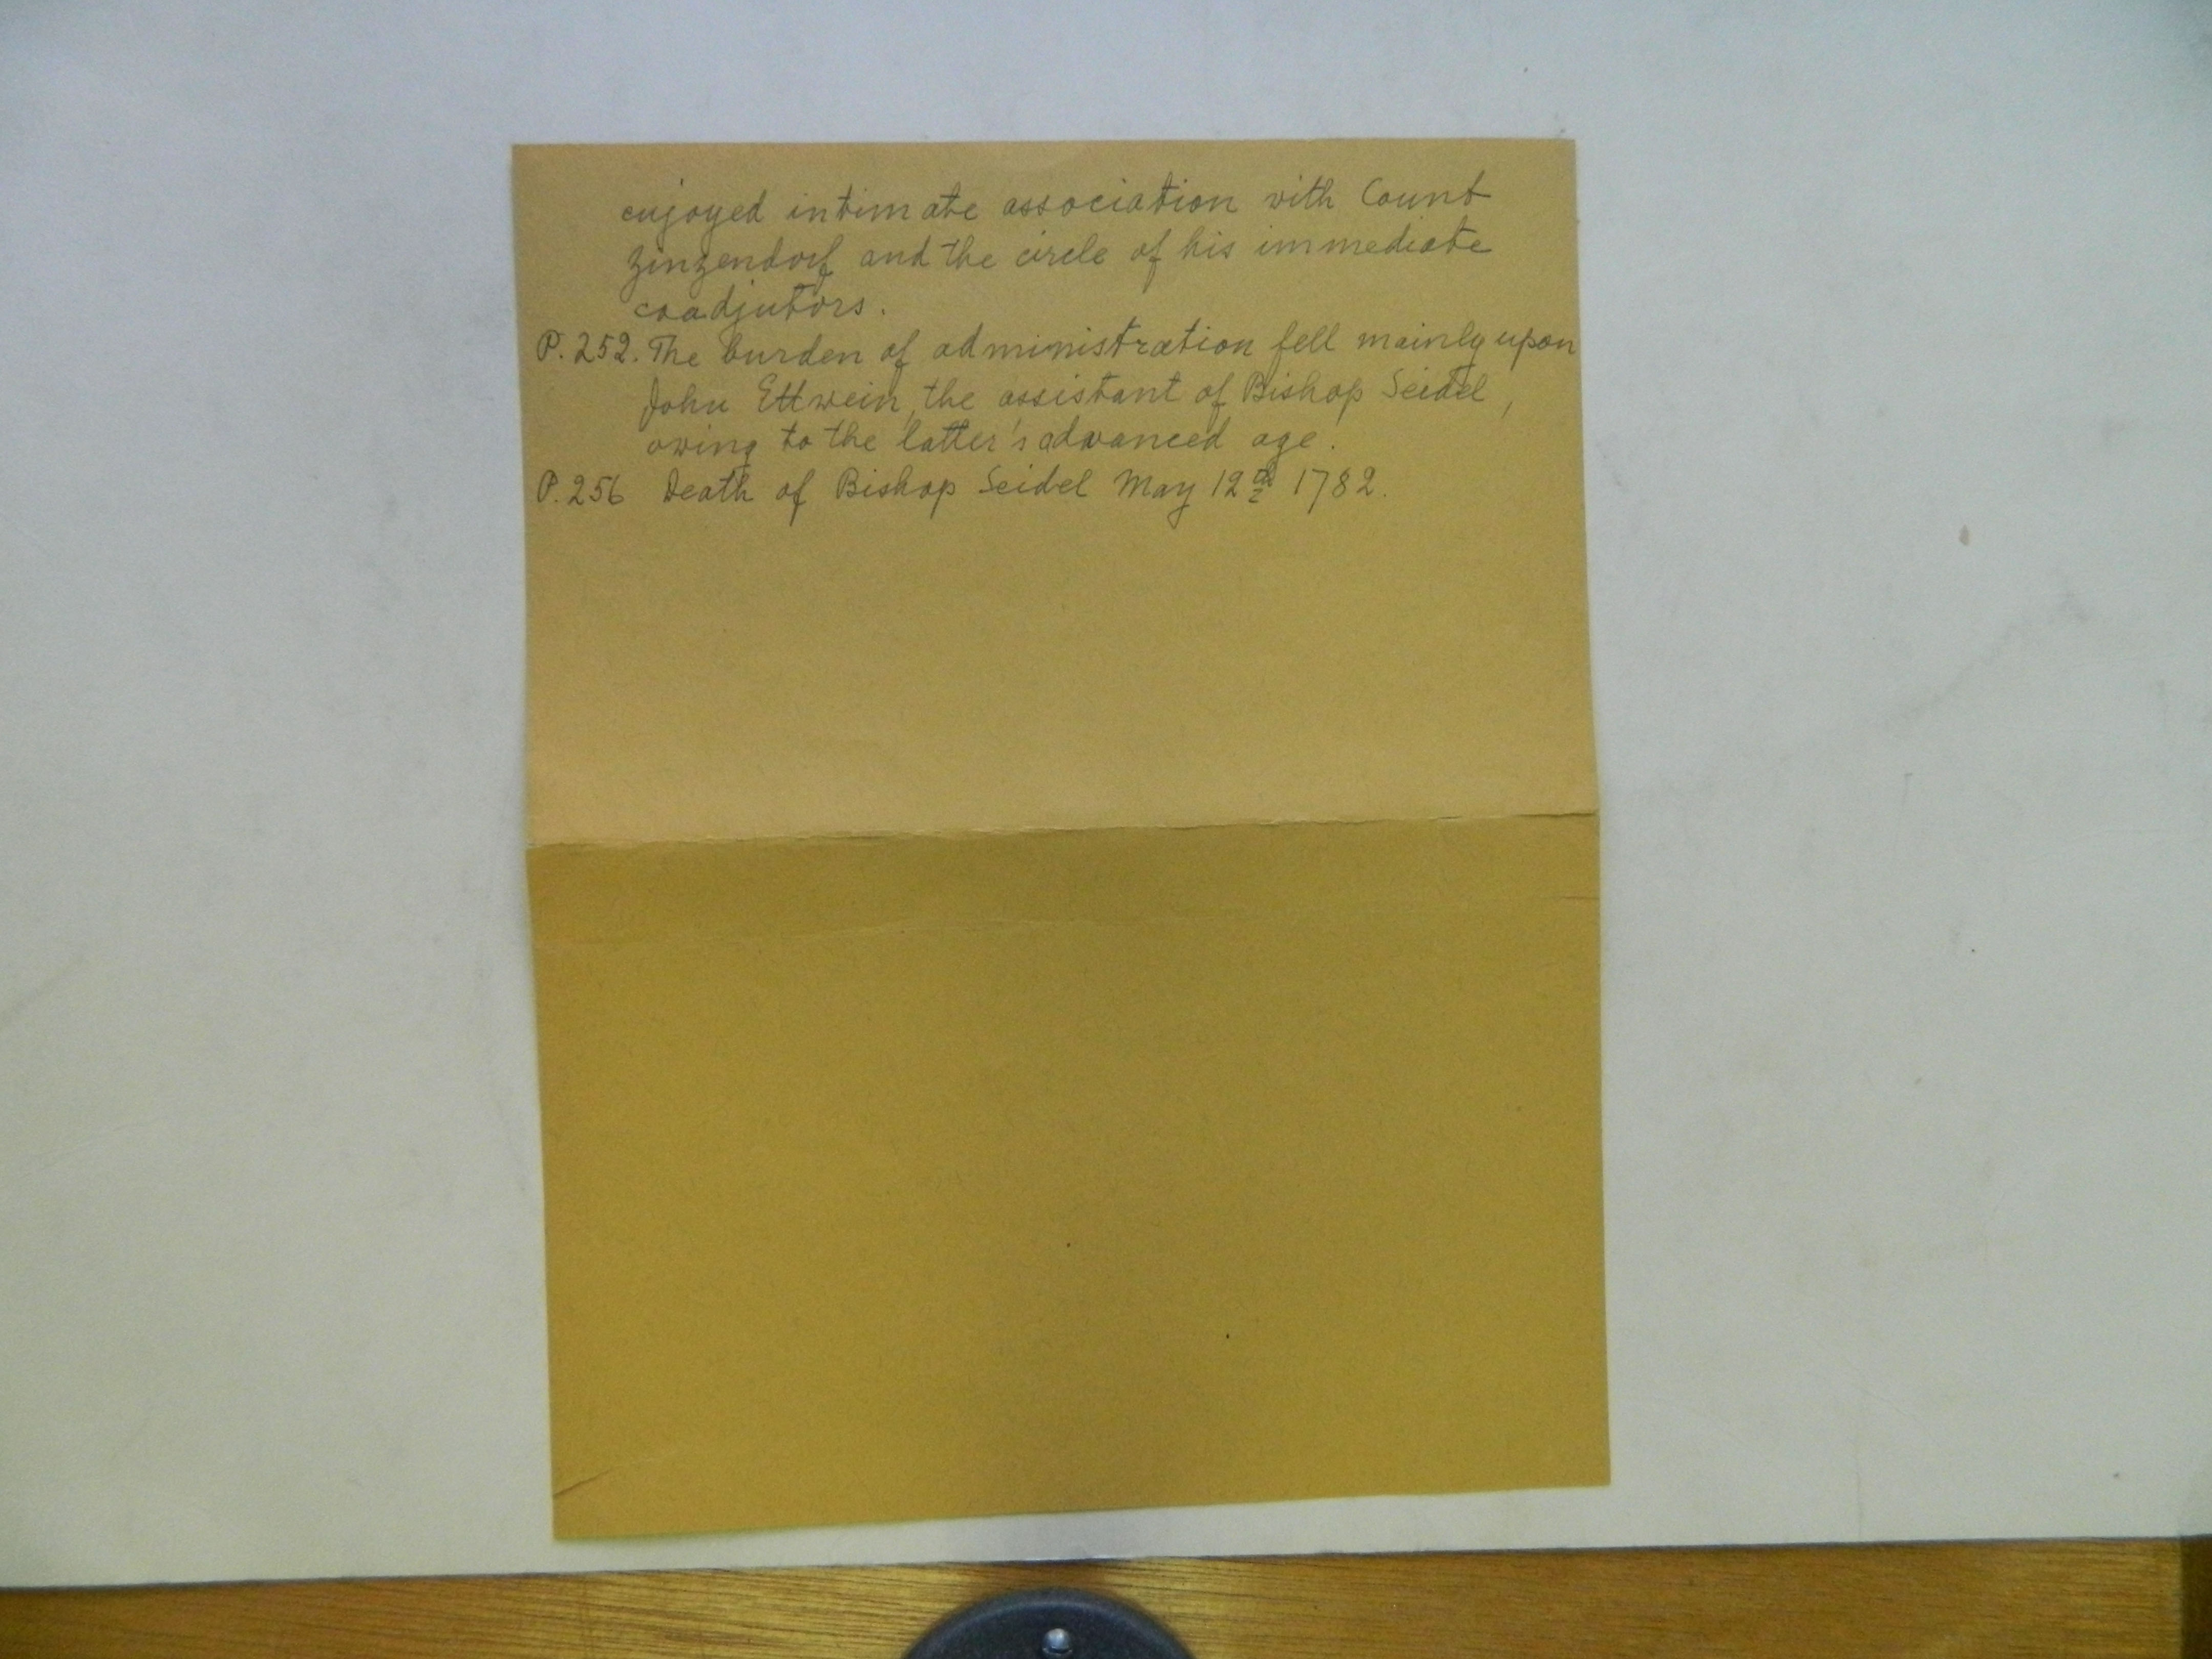 enjoyed intimate association with Count
Zinzendorf and the circle of his immediate
coadjutors.
P. 252. The burden of administration fell mainly upon
John Ettwein, the assistant of Bishop Seidel,
owing to the latter's advanced age.
P. 256 Death of Bishop Seidel May 12th 1782.